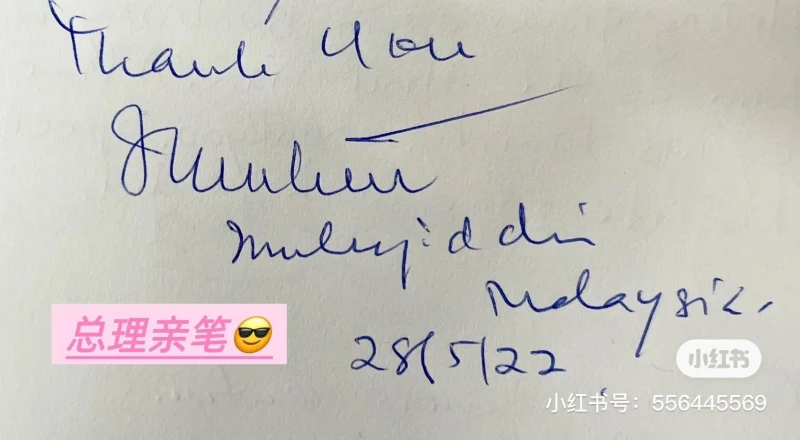 Thank You
Muhyiddin
Malaysia.
总理亲笔😎
28/5/22
小红书
小红书号：556445569